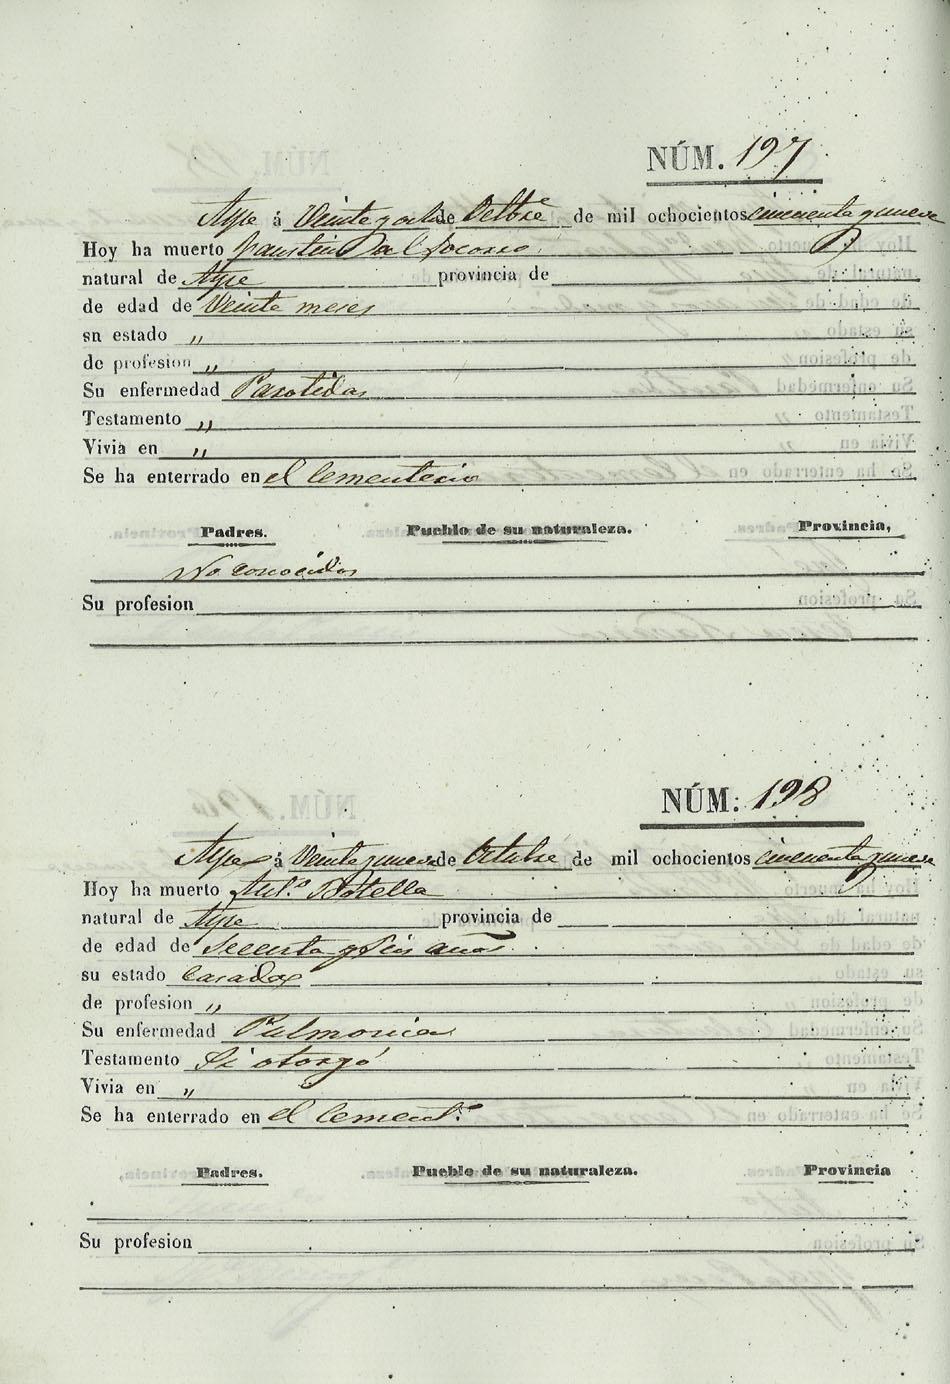 NÚM. 197
Aspe á Veinte y ocho de Octbre de mil ochocientos cincuenta y nueve
Hoy ha muerto Faustino del Socorro
natural de Aspe provincia de
de edad de Veinte meses
sn estado "
de profesion "
Su enfermedad Parotidas
Testamento "
Vivia en "
Se ha enterrado en el Cementerio
Padres. Pueblo de su naturaleza. Provincia,
No conocidos
Su profesion
NÚM: 198
Aspe á Veinte y nueve de Octubre de mil ochocientos cincuenta y nueve
Hoy ha muerto Ant.º Botella
natural de Aspe provincia de
de edad de Secenta y Seis años
su estado Casado
de profesion "
Su enfermedad Pulmonia
Testamento Si otorgó
Vivia en "
Se ha enterrado en el Cement.º
Padres. Pueblo de su naturaleza. Provincia
Su profesion